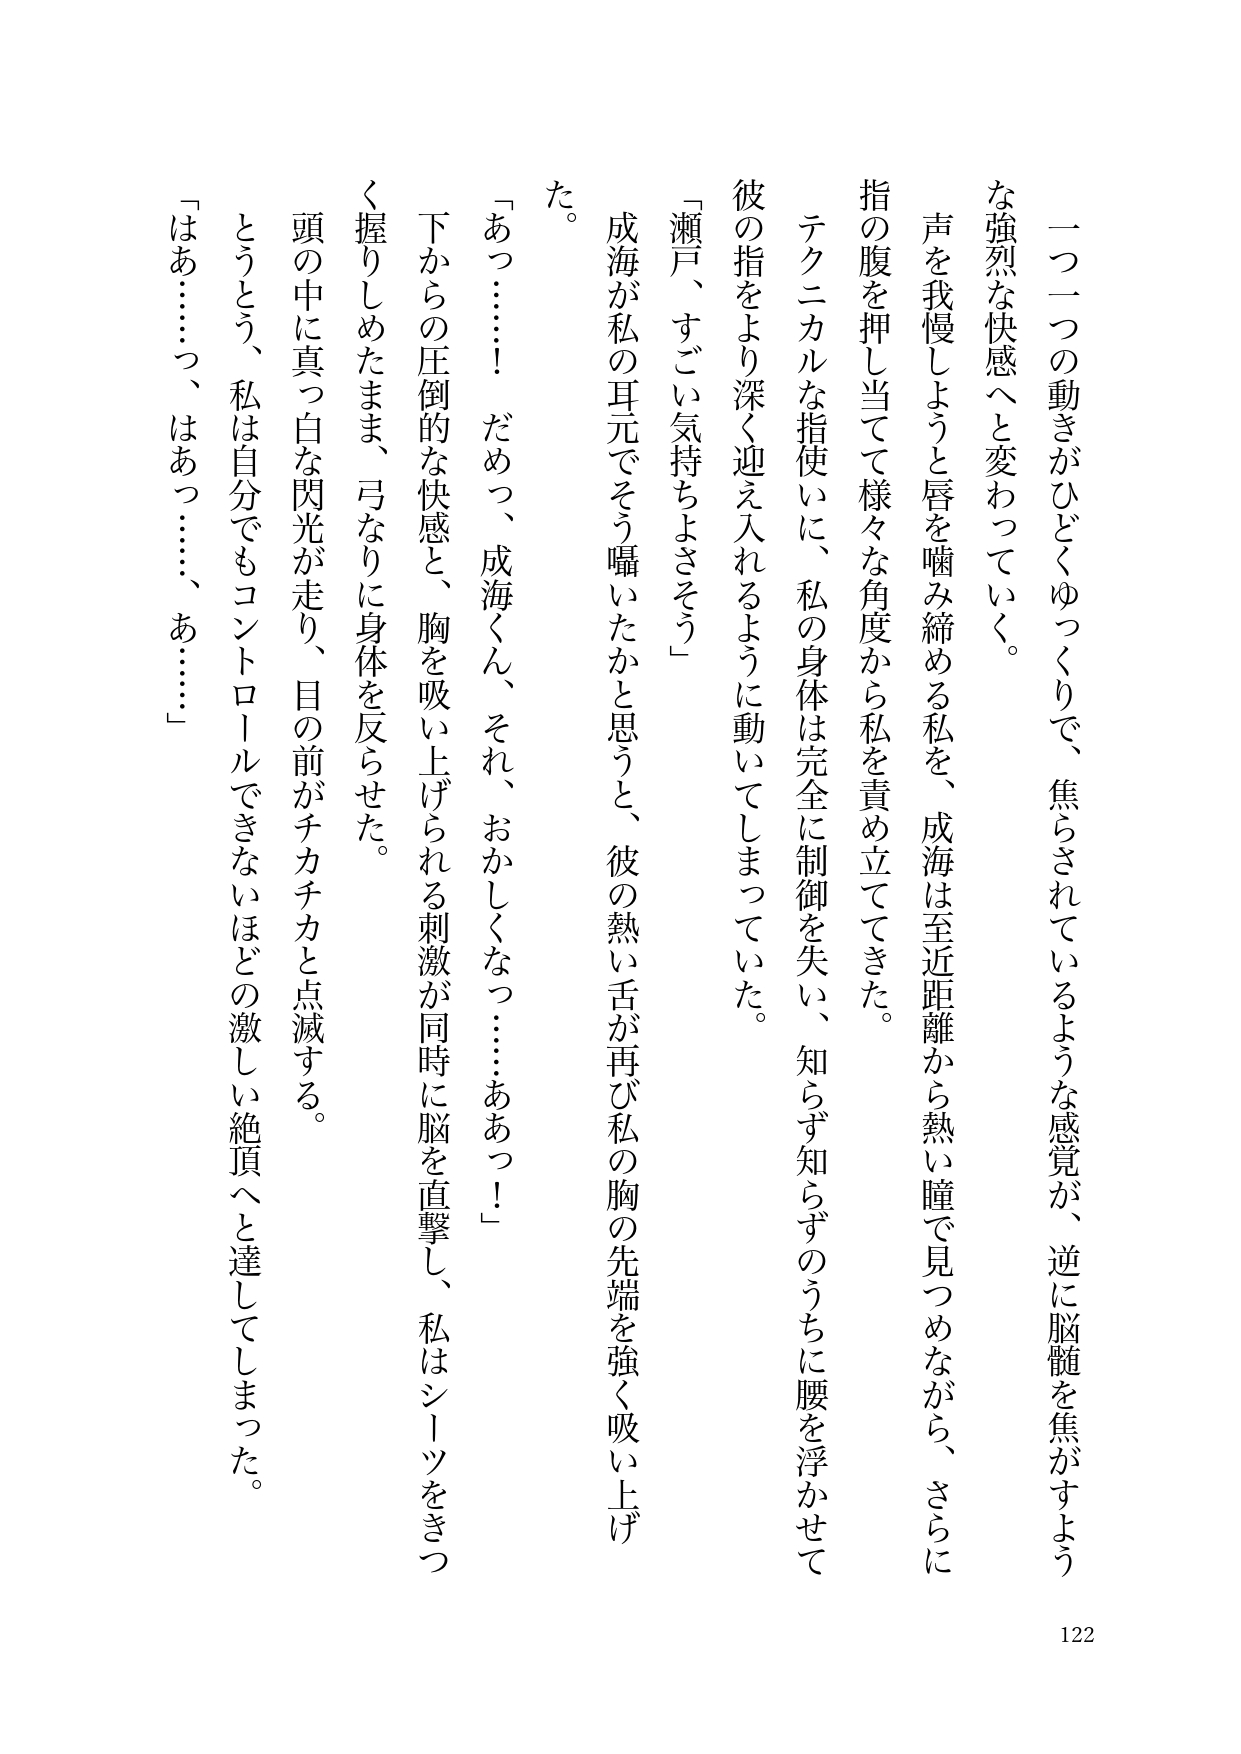 一つ一つの動きがひどくゆっくりで、焦らされているような感覚が、逆に脳髄を焦がすよう
な強烈な快感へと変わっていく。
声を我慢しようと唇を噛み締める私を、成海は至近距離から熱い瞳で見つめながら、さらに
指の腹を押し当てて様々な角度から私を責め立ててきた。
テクニカルな指使いに、私の身体は完全に制御を失い、知らず知らずのうちに腰を浮かせて
彼の指をより深く迎え入れるように動いてしまっていた。
「瀬戸、すごい気持ちよさそう」
成海が私の耳元でそう囁いたかと思うと、彼の熱い舌が再び私の胸の先端を強く吸い上げ
た。
「あっ……！　だめっ、成海くん、それ、おかしくなっ……ああっ！」
下からの圧倒的な快感と、胸を吸い上げられる刺激が同時に脳を直撃し、私はシーツをきつ
く握りしめたまま、弓なりに身体を反らせた。
頭の中に真っ白な閃光が走り、目の前がチカチカと点滅する。
とうとう、私は自分でもコントロールできないほどの激しい絶頂へと達してしまった。
「はあ……っ、はあっ……、あ……」
122